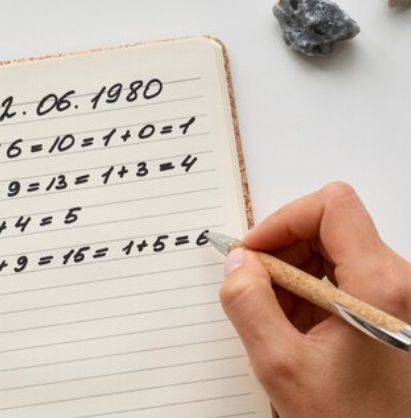 2.06.1980
6=10=1+0=1
9=13=1+3=4
+4=5
+9=15=1+5=6